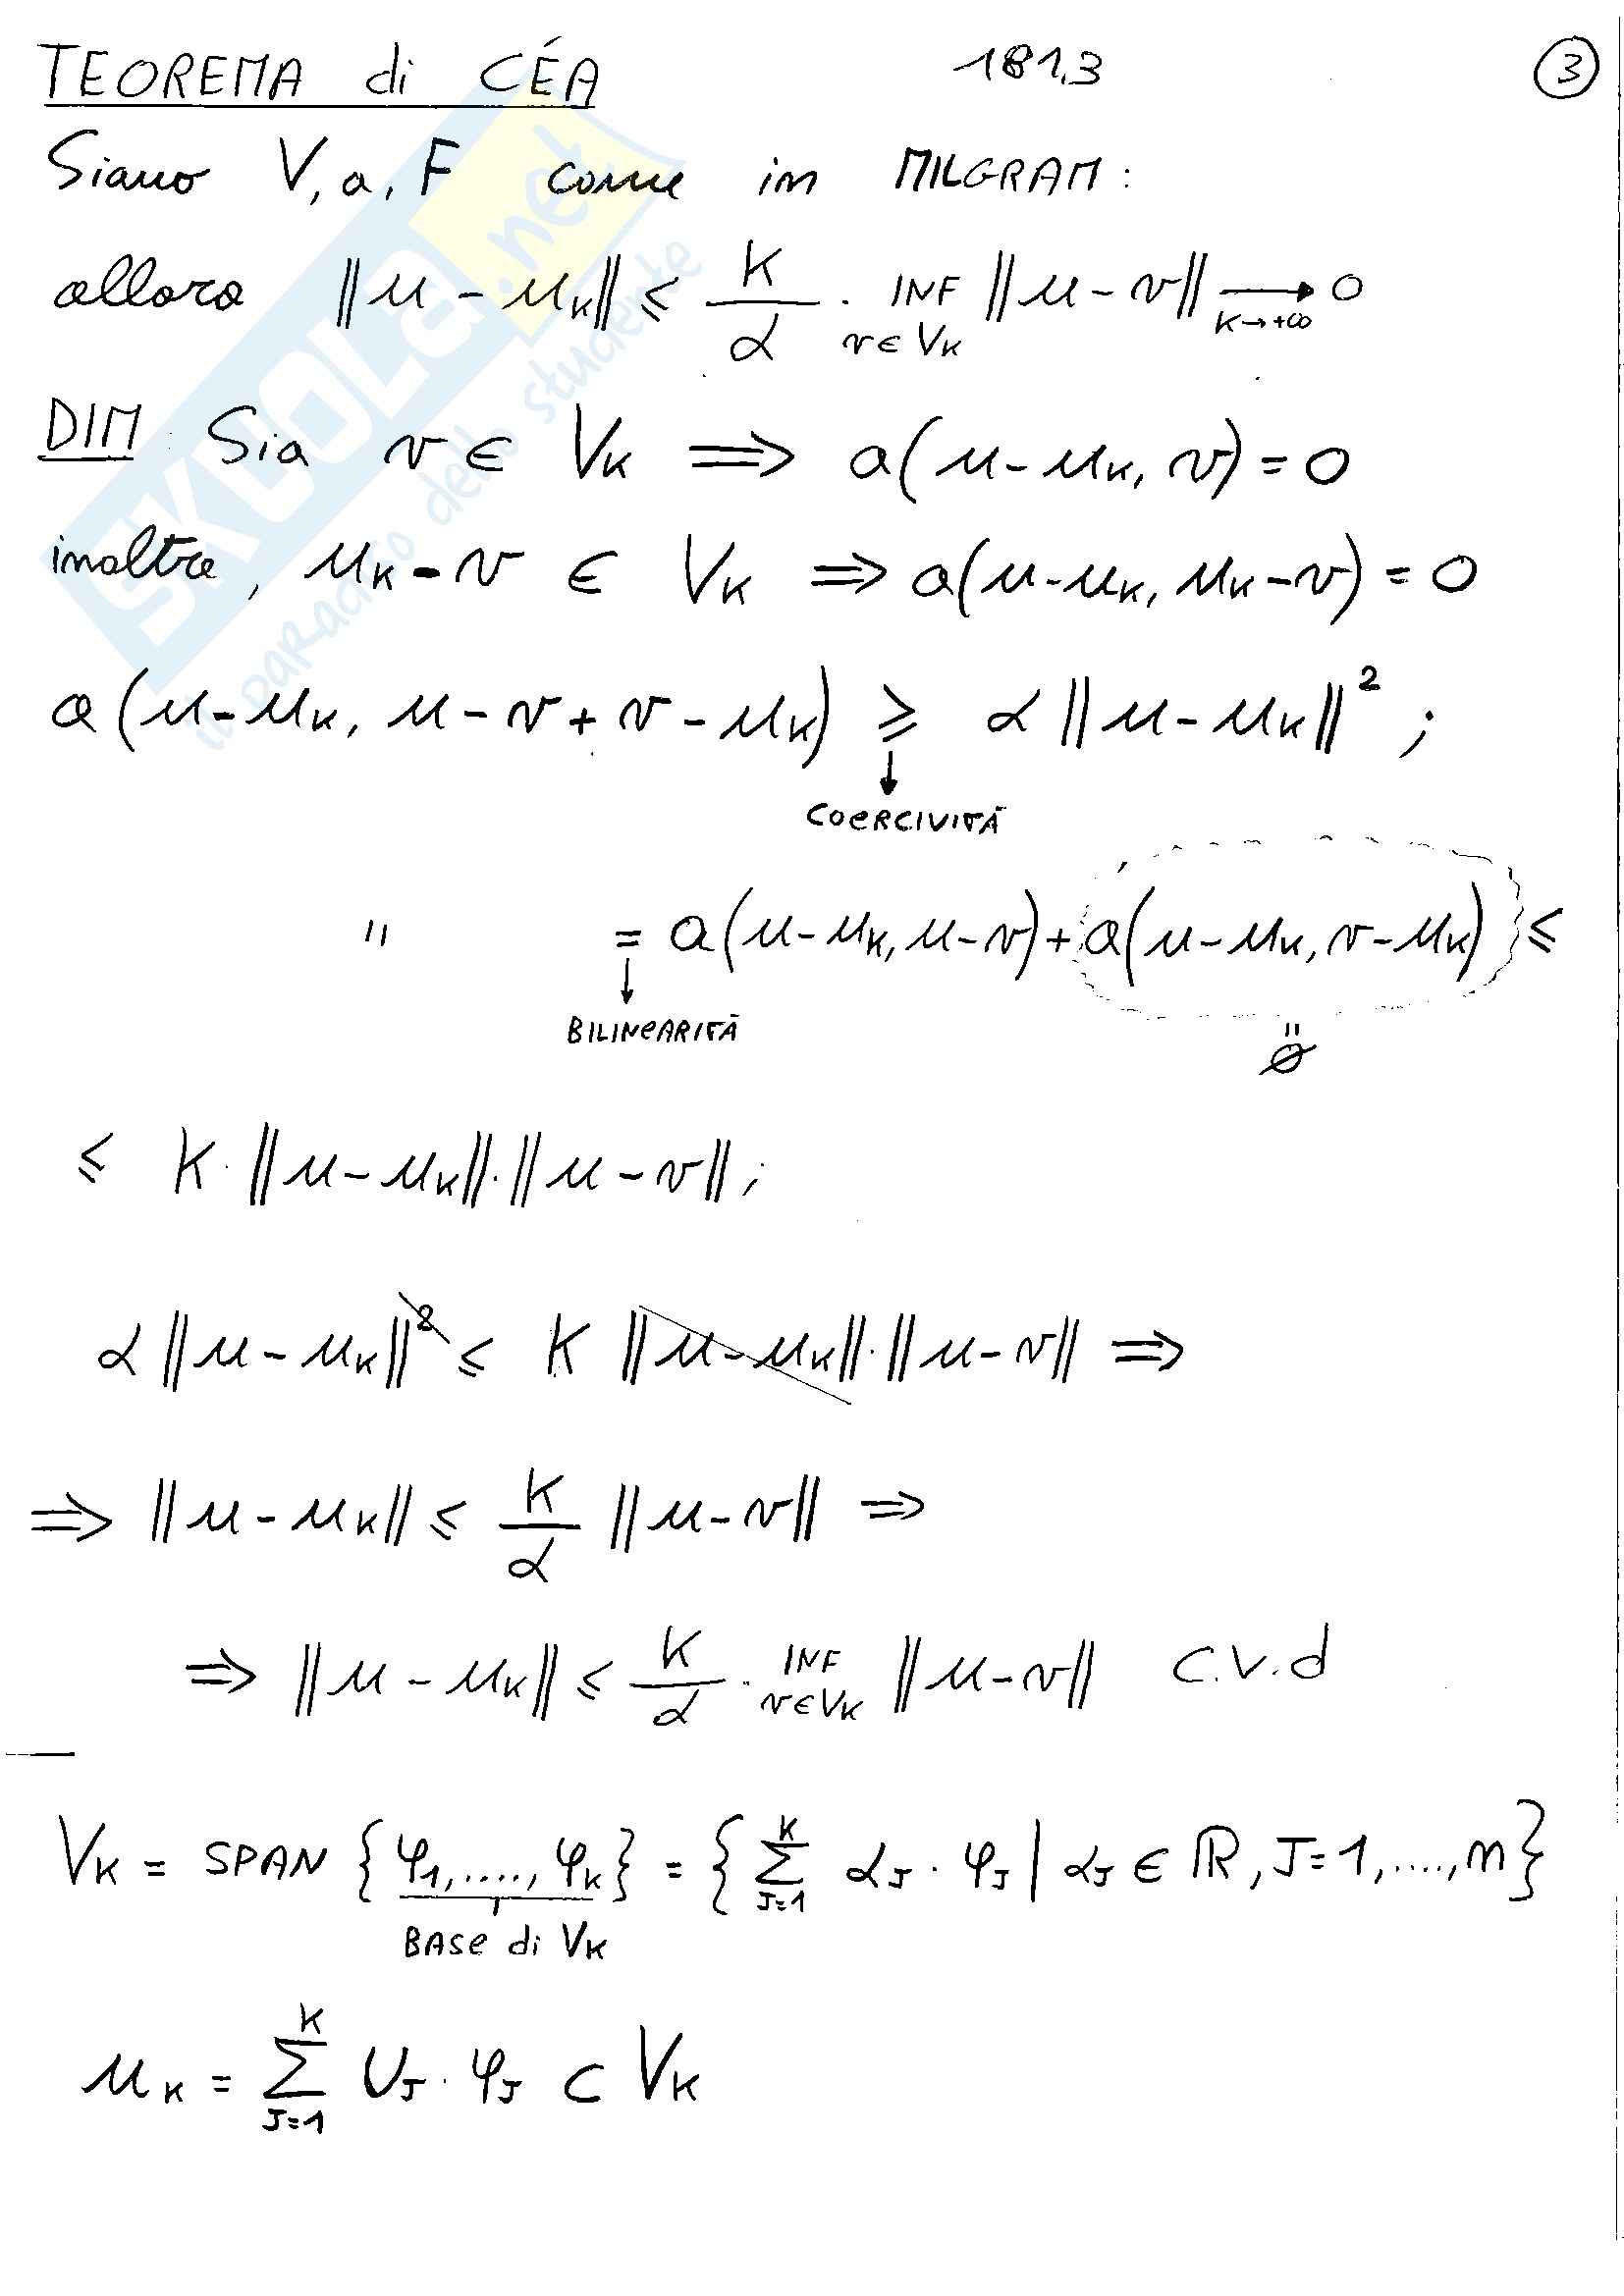 TEOREMA di CÉA 181,3 3
Siano V, a, F come in MILGRAM:
allora ‖u - u_K‖ ≤ K/α · INF_{v∈V_K} ‖u - v‖ →_{K→+∞} 0
DIM: Sia v ∈ V_K ⟹ a(u - u_K, v) = 0
inoltre, u_K - v ∈ V_K ⟹ a(u - u_K, u_K - v) = 0
a(u - u_K, u - v + v - u_K) ≥ α ‖u - u_K‖² ;
↓
COERCIVITÀ
" = a(u - u_K, u - v) + a(u - u_K, v - u_K) ≤
↓
BILINEARITÀ
" ∅
≤ K · ‖u - u_K‖ · ‖u - v‖ ;
α ‖u - u_K‖² ≤ K ‖u - u_K‖ · ‖u - v‖ ⟹
⟹ ‖u - u_K‖ ≤ K/α ‖u - v‖ ⟹
⟹ ‖u - u_K‖ ≤ K/α · INF_{v∈V_K} ‖u - v‖ C.V.d
V_K = SPAN {φ_1, ...., φ_K} = {∑_{J=1}^{K} α_J · φ_J | α_J ∈ ℝ, J=1, ...., n}
BASE di V_K
u_K = ∑_{J=1}^{K} U_J · φ_J ⊂ V_K
SKUOLA.net
il paradiso dello studente